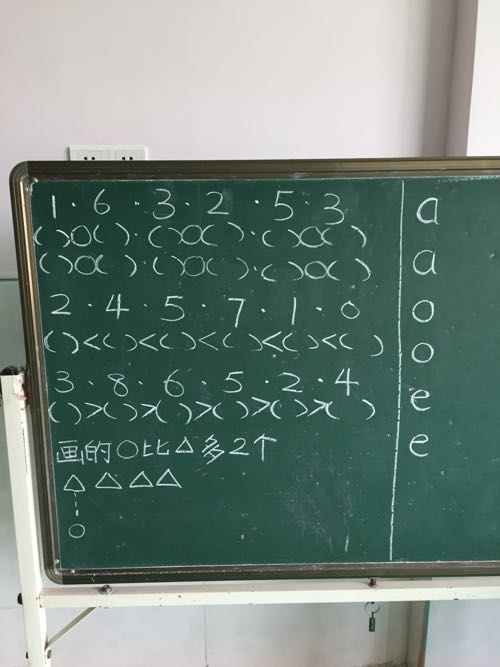 1·6·3·2·5·3
( )○( )·( )○( )·( )○( )
( )○( )·( )○( )·( )○( )
2·4·5·7·1·0
( )<( )<( )<( )<( )<( )
3·8·6·5·2·4
( )>( )>( )>( )>( )>( )
画的○比△多2个
△△△△
○
a
a
o
o
e
e